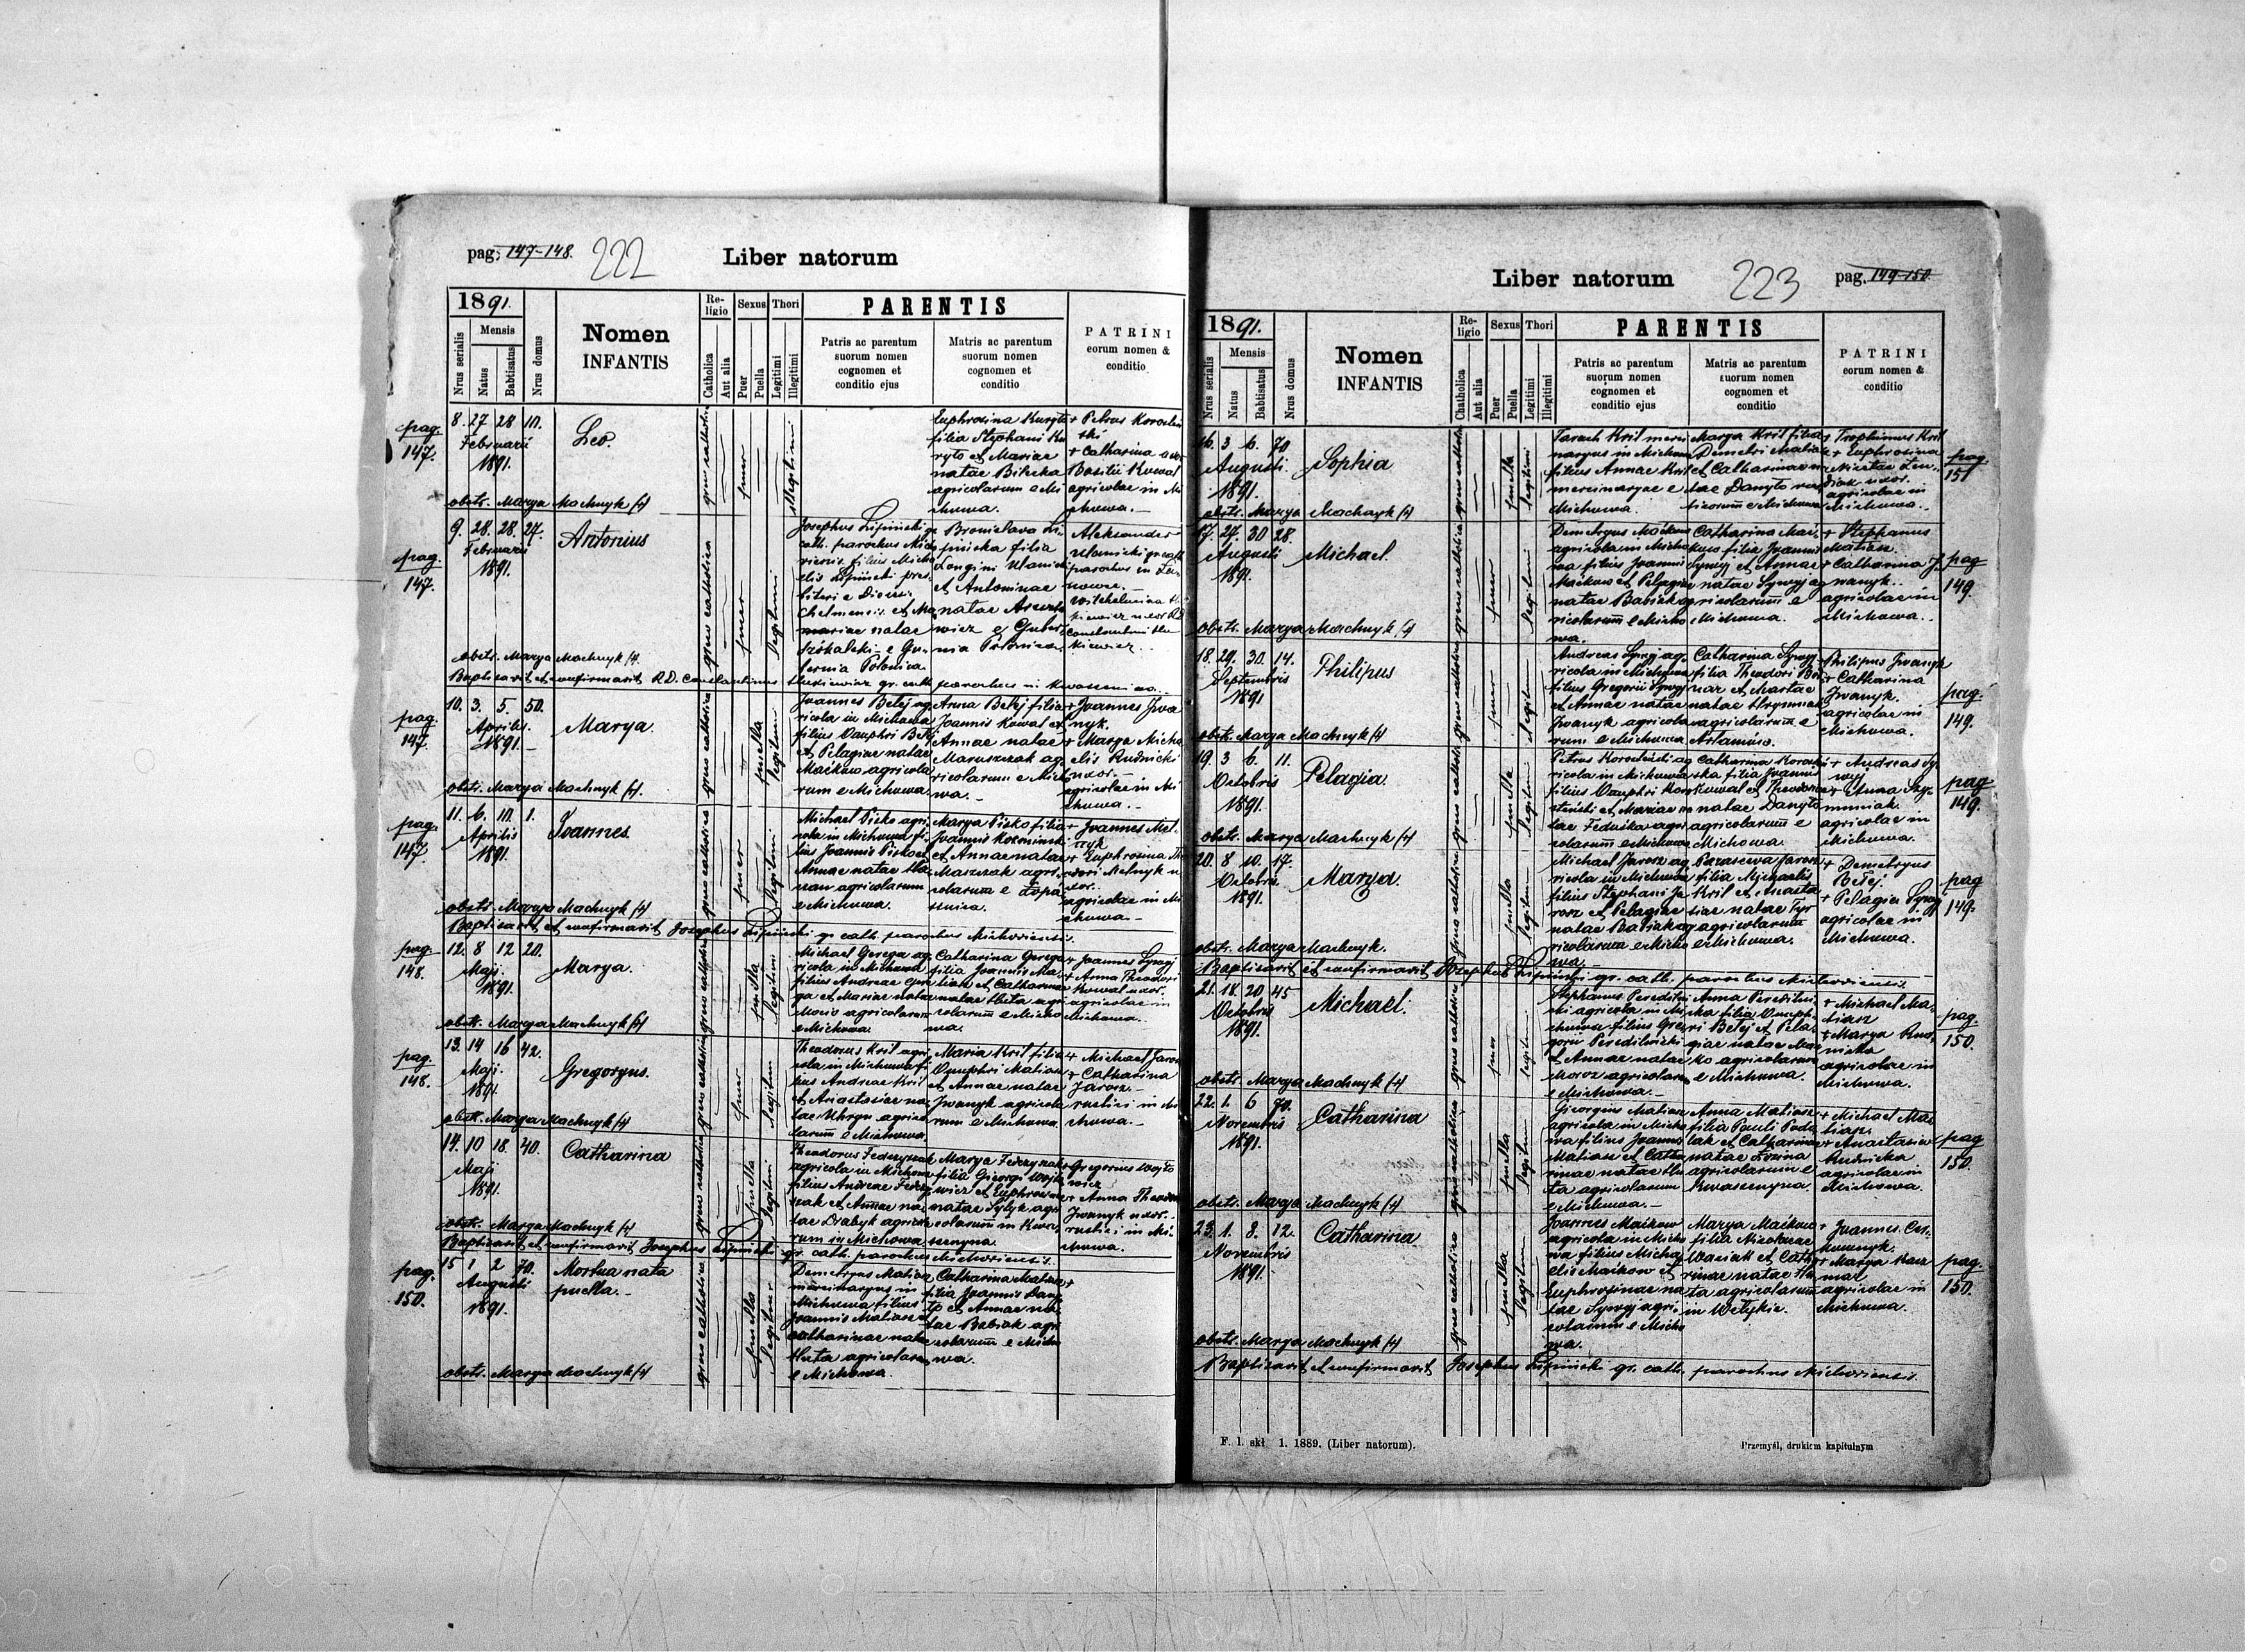 pag. 147-148. 222 Liber natorum
1891.
Nrus serialis
Mensis
Natus
Babtisatus
Nrus domus
Nomen
INFANTIS
Religio
Catholica
Aut alia
Sexus
Puer
Puella
Thori
Legitimi
Illegitimi
PARENTIS
Patris ac parentum
suorum nomen
cognomen et
conditio ejus
Matris ac parentum
suorum nomen
cognomen et
conditio
PATRINI
eorum nomen &
conditio
pag. 147.
8. 27 28 10.
Februarii
1891.
Leo.
graeco catholica
puer
illegitimi
Euphrosina Kuryto
filia Stephani Ku
ryto et Mariae
natae
agricolarum e Mi
chowa.
+ Petrus
+ Catharina uxor
Basilii Kowal
agricolae in Mi
chowa.
obstr. Marya Machnyk
pag. 147.
9. 28. 28. 24.
Februarii
1891.
Antonius
graeco catholica
puer
legitimi
Josephus Lipiński gr.
cath. parochus
filius Micha
elis Lipiński pres
biteri e Dioecesi
Chelmensi et Ma
mariae natae
e Gu
bernia Polonica.
Bronislava Li
pińska filia
Longini
et Antoninae
natae
e Guber
nia Polonica.
Aleksander
gr. cath.
parochus in
Wilhelmina
uxor RD
Constantini
obstr. Marya Machnyk
Baptisavit et confirmavit R.D. Constantinus gr. cath. parochus in
pag. 147.
10. 3. 5. 50.
Aprilis.
1891.
Marya.
graeco catholica
puella
legitimi
Joannes Betej ag
ricola in Michowa
filius Onuphri Betej
et Pelagiae natae
Maćkow agricola
rum e Michowa.
Anna Betej filia
Joannis Kowal et
Annae natae
Maruszczak ag
ricolarum e Micho
wa.
+ Joannes Iwa
nyk.
+ Marya Micha
elis Rudnicki
uxor.
agricolae in Mi
chowa.
obstr. Marya Machnyk
pag. 147.
11. 6. 10. 1.
Aprilis
1891.
Joannes.
graeco catholica
puer
legitimi
Michael Pisko agri
cola in Michowa fi
lius Joannis Pisko et
Annae natae
agricolarum
e Michowa.
Marya Pisko filia
Joannis
et Annae natae
Maszczak agri
colarum e
+ Joannes Mel
nyk
+ Euphrosina The
odori Melnyk u
xor.
agricolae in Mi
chowa.
obstr. Marya Machnyk
Baptisavit et confirmavit Josephus Lipiński gr. cath. parochus Michoviensis.
pag. 148.
12. 8 12 20.
Maji.
1891.
Marya.
graeco catholica
puella
legitimi
Michael Gerega ag
ricola in Michowa
filius Andreae Gere
ga et Mariae natae
agricolarum
e Michowa.
Catharina Gerega
filia Joannis Ma
tiasz et Catharinae
natae Huta agri
colarum e Micho
wa.
+ Joannes Sywyj
+ Anna Theodori
Kowal uxor.
agricolae in
Michowa.
obstr. Marya Machnyk
pag. 148.
13. 14 16 42.
Maji.
1891.
Gregoryus.
graeco catholica
puer
legitimi
Theodorus Kril agri
cola in Michowa fi
lius Andreae Kril
et Anastasiae na
tae agrico
larum e Michowa.
Maria Kril filia
Onuphri Matiasz
et Annae natae
Iwanyk agricola
rum e Michowa.
+ Michael Jarosz
+ Catharina
Jarosz.
rustici in Mi
chowa.
obstr. Marya Machnyk
14. 10 18. 40.
Maji
1891.
Catharina
graeco catholica
puella
legitimi
Theodorus Fedczyszak
agricola in Michowa
filius Andreae Fedczy
szak et Annae na
tae Drabyk agricola
rum in Michowa.
Marya Fedczyszak
filia Georgi Wojto
wicz et Euphrosinae
natae agri
colarum in Kwa
szenyna.
+ Gregorius Wojto
wicz
+ Anna Theodori
Iwanyk uxor.
rustici in Mi
chowa.
obstr. Marya Machnyk
Baptisavit et confirmavit Josephus Lipiński gr. cath. parochus Michoviensis.
pag. 150.
15 1 2 70.
Augusti
1891.
Mortua nata
puella.
graeco catholica
puella
legitimi
Demetryus Matiasz
mercinaryus in
Michowa filius
Joannis Matiasz et
Catharinae natae
Huta agricolarum
e Michowa.
Catharina Matiasz
filia Joannis Dany
to et Annae na
tae Babiak agri
colarum e Micho
wa.
+
obstr. Marya Machnyk
Liber natorum 223 pag. 149-150.
1891.
Nrus serialis
Mensis
Natus
Babtisatus
Nrus domus
Nomen
INFANTIS
Religio
Chatholica
Aut alia
Sexus
Puer
Puella
Thori
Legitimi
Illegitimi
PARENTIS
Patris ac parentum
suorum nomen
cognomen et
conditio ejus
Matris ac parentum
suorum nomen
cognomen et
conditio
PATRINI
eorum nomen &
conditio
16. 3 6. 70
Augusti
1891.
Sophia
graeco catholica
puella
legitimi
Tarach Kril merci
naryus in Michowa
filius Annae Kril
mercinaryae e
Michowa.
Marya Kril filia
Demetri Matiasz
et Catharinae na
tae Danyto rus
ticorum e Michowa
+ Trophimus Kril
+ Euphrosina
Nicetae
uxor.
agricolae in
Michowa.
pag. 151
obstr. Marya Machnyk
17. 27. 30 28.
Augusti
1891.
Michael.
graeco catholica
puer
legitimi
Demetryus Maćkow
agricola in Micho
wa filius Joannis
Maćkow et Pelagiae
natae Babiak ag
ricolarum e Micho
wa.
Catharina Mać
kow filia Joannis
Sywyj et Annae
natae Sywyj ag
ricolarum e
Michowa.
+ Stephanus
Matiasz
+ Catharina I
wanyk.
agricolae in
Michowa.
pag 149.
obstr. Marya Machnyk
18. 29. 30. 14.
Septembris
1891
Philipus
graeco catholica
puer
legitimi
Andreas Sywyj ag
ricola in Michowa
filius Gregorii Sywyj
et Annae natae
Iwanyk agricola
rum e Michowa
Catharina Sywyj
filia Theodori
et Martae
natae
agricolarum e
+ Philipus Iwanyk
+ Catharina
Iwanyk.
agricolae in
Michowa.
pag. 149.
obstr. Marya Machnyk
19. 3 6. 11.
Octobris
1891.
Pelagia.
graeco catholica
puella
legitimi
Petrus ag
ricola in Michowa
filius Onuphri
et Mariae na
tae agri
colarum e Michowa
Catharina
filia Joannis
Kowal et Theodorae
natae Danyto
agricolarum e
Michowa.
+ Andreas Sy
wyj
+ Anna
agricolae in
Michowa.
pag 149.
obstr. Marya Machnyk
20. 8 10. 17.
Octobris.
1891.
Marya.
graeco catholica
puella
legitimi
Michael Jarosz ag
ricola in Michowa
filius Stephani Ja
rosz et Pelagiae
natae Babiak ag
ricolarum e Micho
wa.
Parasceva Jarosz
filia Michaelis
Kril et Anasta
siae natae
agricolarum
e Michowa.
+ Demetryus
Betej
+ Pelagia Sywyj
agricolae in
Michowa.
pag 149.
obstr. Marya Machnyk.
Baptisavit et confirmavit Josephus Lipiński gr. cath. parochus Michoviensis.
21. 18. 20 45
Octobris
1891.
Michael.
graeco catholica
puer
legitimi
Stephanus Peredilni
cki agricola in Mi
chowa filius Gre
gorii Peredilnicki
et Annae natae
Moroz agricolarum
e Michowa.
Anna Peredilni
cka filia Onuph
ri Betej et Pela
giae natae
agricolarum
e Michowa.
+ Michael Ma
tiasz
+ Marya Rud
nicka
agricolae in
Michowa.
pag. 150.
obstr. Marya Machnyk
22. 1. 6 70.
Novembris
1891.
Catharina
graeco catholica
puella
legitimi
Georgius Matiasz
agricola in Micho
wa filius Joannis
Matiasz et Catha
rinae natae Hu
ta agricolarum
e Michowa.
Anna Matiasz
filia Pauli Poda
lak et Catharinae
natae
agricolarum e
Kwaszenyna.
+ Michael Ma
tiasz.
+ Anastasia
Rudnicka
agricolae in
Michowa.
pag 150.
obstr. Marya Machnyk
23. 1. 8. 12.
Novembris
1891.
Catharina
graeco catholica
puella
legitimi
Joannes Maćkow
agricola in Micho
wa filius Micha
elis Maćkow et
Euphrosinae na
tae Sywyj agri
colarum e Micho
wa.
Marya Maćkow
filia Nicolai
et Catha
rinae natae Hu
ta agricolarum
in
+ Joannes
+ Marya
agricolae in
Michowa.
pag. 150.
obstr. Marya Machnyk
Baptisavit et confirmavit Josephus Lipiński gr. cath. parochus Michoviensis.
F. l. skł 1. 1889. (Liber natorum).
Przemyśl, drukiem kapitulnym